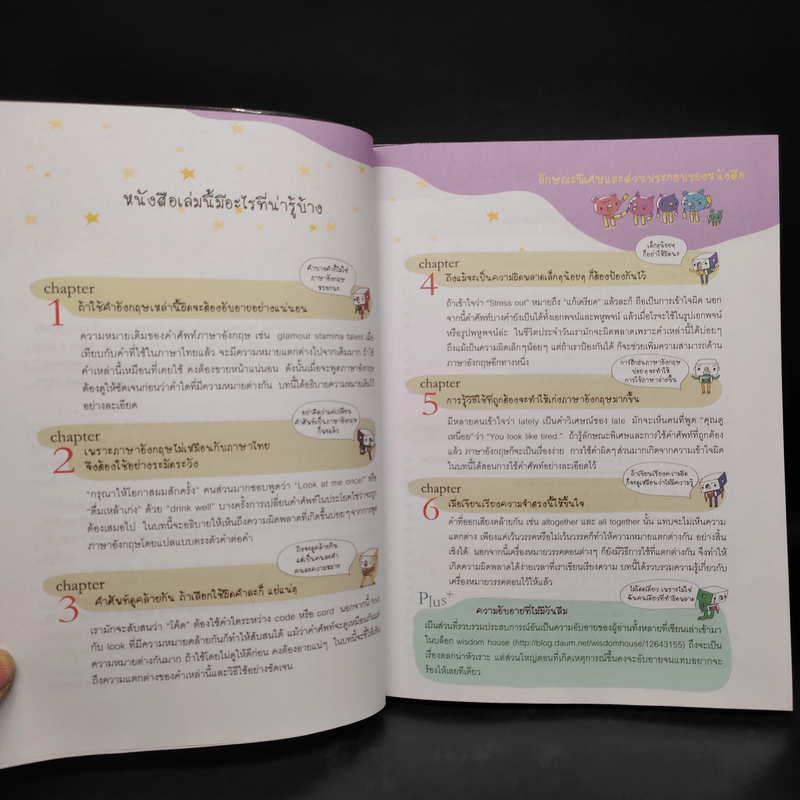 หนังสือเล่มนี้มีอะไรที่น่ารู้บ้าง
คำบางคำก็ไม่ใช่
ภาษาอังกฤษ
หรอกนะ
chapter
1 ถ้าใช้คำอังกฤษเหล่านี้ผิดจะต้องอับอายอย่างแน่นอน
ความหมายเดิมของคำศัพท์ภาษาอังกฤษ เช่น glamour stamina talent เมื่อ
เทียบกับคำที่ใช้ในภาษาไทยแล้ว จะมีความหมายแตกต่างไปจากเดิมมาก ถ้าใช้
คำเหล่านี้เหมือนที่เคยใช้ คงต้องขายหน้าแน่นอน ดังนั้นเมื่อจะพูดภาษาอังกฤษ
ต้องดูให้ชัดเจนก่อนว่าคำใดที่มีความหมายต่างกัน บทนี้ได้อธิบายความหมายเดิมไว้
อย่างละเอียด
อย่าคิดว่าแค่เปลี่ยน
คำศัพท์เป็นภาษาอังกฤษ
ก็พอแล้ว
chapter
2 เพราะภาษาอังกฤษไม่เหมือนกับภาษาไทย
จึงต้องใช้อย่างระมัดระวัง
"กรุณาให้โอกาสผมสักครั้ง" คนส่วนมากชอบพูดว่า "Look at me once!" หรือ
"ดื่มเหล้าเก่ง" ด้วย "drink well" บางครั้งการเปลี่ยนคำศัพท์ในประโยคใช่ว่าจะถูก
ต้องเสมอไป ในบทนี้จะอธิบายให้เห็นถึงความผิดพลาดที่เกิดขึ้นบ่อยๆจากการพูด
ภาษาอังกฤษโดยแปลแบบตรงตัวคำต่อคำ
ถึงจะดูคล้ายกัน
แต่เป็นคนละคำ
คนละความหมาย
chapter
3 คำศัพท์ดูคล้ายกัน ถ้าเลือกใช้ผิดคำละก็ แย่แน่ๆ
เรามักจะสับสนว่า "โค้ด" ต้องใช้คำใดระหว่าง code หรือ cord นอกจากนี้ find
กับ look ที่มีความหมายคล้ายกันก็ทำให้สับสนได้ แม้ว่าคำศัพท์จะดูเหมือนกันแต่
ความหมายต่างกันมาก ถ้าใช้โดยไม่ดูให้ดีก่อน คงต้องอายแน่ๆ ในบทนี้จะชี้ให้เห็น
ถึงความแตกต่างของคำเหล่านี้และวิธีใช้อย่างชัดเจน
ลักษณะพิเศษและส่วนประกอบของหนังสือ
เล็กๆน้อยๆ
ก็อย่าใช้ผิดนะ
chapter
4 ถึงแม้จะเป็นความผิดพลาดเล็กๆน้อยๆ ก็ต้องป้องกันไว้
ถ้าเข้าใจว่า "Stress out" หมายถึง "แก้เครียด" แล้วละก็ ถือเป็นการเข้าใจผิด นอก
จากนี้คำศัพท์บางคำยังเป็นได้ทั้งเอกพจน์และพหูพจน์ แล้วเมื่อไรจะใช้ในรูปเอกพจน์
หรือรูปพหูพจน์ล่ะ ในชีวิตประจำวันเรามักจะผิดพลาดเพราะคำเหล่านี้ได้บ่อยๆ
ถึงแม้เป็นความผิดเล็กน้อยๆ แต่ถ้าเราป้องกันได้ ก็จะช่วยเพิ่มความสามารถด้าน
ภาษาอังกฤษอีกทางหนึ่ง
การฝึกฝนภาษาอังกฤษ
บ่อยๆจะทำให้
การใช้ภาษาง่ายขึ้น
chapter
5 การรู้วิธีใช้ที่ถูกต้องจะทำให้เก่งภาษาอังกฤษมากขึ้น
มีหลายคนเข้าใจว่า lately เป็นคำวิเศษณ์ของ late มักจะเห็นคนที่พูด "คุณดู
เหนื่อย" ว่า "You look like tired." ถ้ารู้ลักษณะพิเศษและการใช้คำศัพท์ที่ถูกต้อง
แล้ว ภาษาอังกฤษก็จะเป็นเรื่องง่าย การใช้คำผิดๆส่วนมากเกิดจากความเข้าใจผิด
ในบทนี้ได้สอนการใช้คำศัพท์อย่างละเอียดไว้
ถ้าเขียนเรียงความผิด
ก็จะดูเหมือนว่าไม่มีความรู้
chapter
6 เมื่อเขียนเรียงความจำตรงนี้ให้ขึ้นใจ
คำที่ออกเสียงคล้ายกัน เช่น altogether และ all together นั้น แทบจะไม่เห็นความ
แตกต่าง เพียงแค่เว้นวรรคหรือไม่เว้นวรรคก็ทำให้ความหมายแตกต่างกัน อย่างสิ้น
เชิงได้ นอกจากนี้เครื่องหมายวรรคตอนต่างๆ ก็ยังมีวิธีการใช้ที่แตกต่างกัน จึงทำให้
เกิดความผิดพลาดได้ง่ายเวลาที่เราเขียนเรียงความ บทนี้ได้รวบรวมความรู้เกี่ยวกับ
เครื่องหมายวรรคตอนไว้ให้แล้ว
ไม่โดดเดี่ยว เพราะไม่ใช่
ฉันคนเดียวที่ทำผิดพลาด
Plus+
ความอับอายที่ไม่มีวันลืม
เป็นส่วนที่รวบรวมประสบการณ์อันเป็นความอับอายของผู้อ่านทั้งหลายที่เขียนเล่าเข้ามา
ในบล็อก wisdom house (http://blog.daum.net/wisdomhouse/12643155) ถึงจะเป็น
เรื่องตลกน่าหัวเราะ แต่ส่วนใหญ่ตอนที่เกิดเหตุการณ์ขึ้นคงจะอับอายจนแทบอยากจะ
ร้องไห้เลยทีเดียว